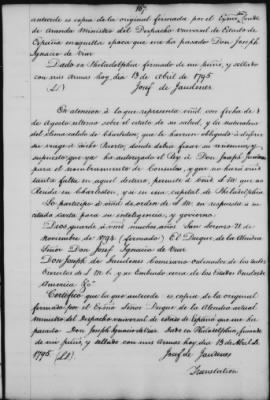 167
antecede es copia de la original firmada por el Exmo Conde
de Aranda Ministro del Despacho Universal de Estado de
España en aquella epoca que me ha pasado Don Joseph
Ignacio de Viar
Dado en Philadelphia firmado de mi puño, y sellado
con mis Armas hoy dia 13 de abril de 1795
(LS) Josef de Jaudenes
En atencion á lo que representa vmd. con fecha de
de Agosto ultimo sobre el estado de su salud, y la naturaleza
del clima calido de Charleston, que le havian obligado á diferir
su viage á dicho Puerto, donde debia fixar su residencia, y
supuesto que ya ha autorizado el Rey á Don Josef Jaudenes
para el nombramiento de Consules, y que no hará vmd.
tanta falta en aquel destino, permite á vmd. S M que no
Resida en Charleston, y si en esa capital de Philadelphia
Lo participo á vmd. de orden de S M en respuesta á su
citada carta para su inteligencia, y govierno
Dios guarde á vmd. muchos años San Lorenzo 21 de
noviembre de 1794 (firmado) El Duque de la Alcudia
Señor Don Josef Ignacio de Viar
Don Josef de Jaudenes Comisario ordenador de los
Exercitos de S M C. y su Embiado cerca de los Estados Unidos de
America &c
Certifico que la que antecede es copia de la original
firmada por el Exmo Señor Duque de la Alcudia actual
ministro del Despacho universal de estado de España que me ha
pasado Don Joseph Ignacio de Viar Dado en Philadelphia, firmado
de mi puño, y sellado con mis Armas hoy dia 13 de Abril de
1795 (LS). Josef de Jaudenes
Translation